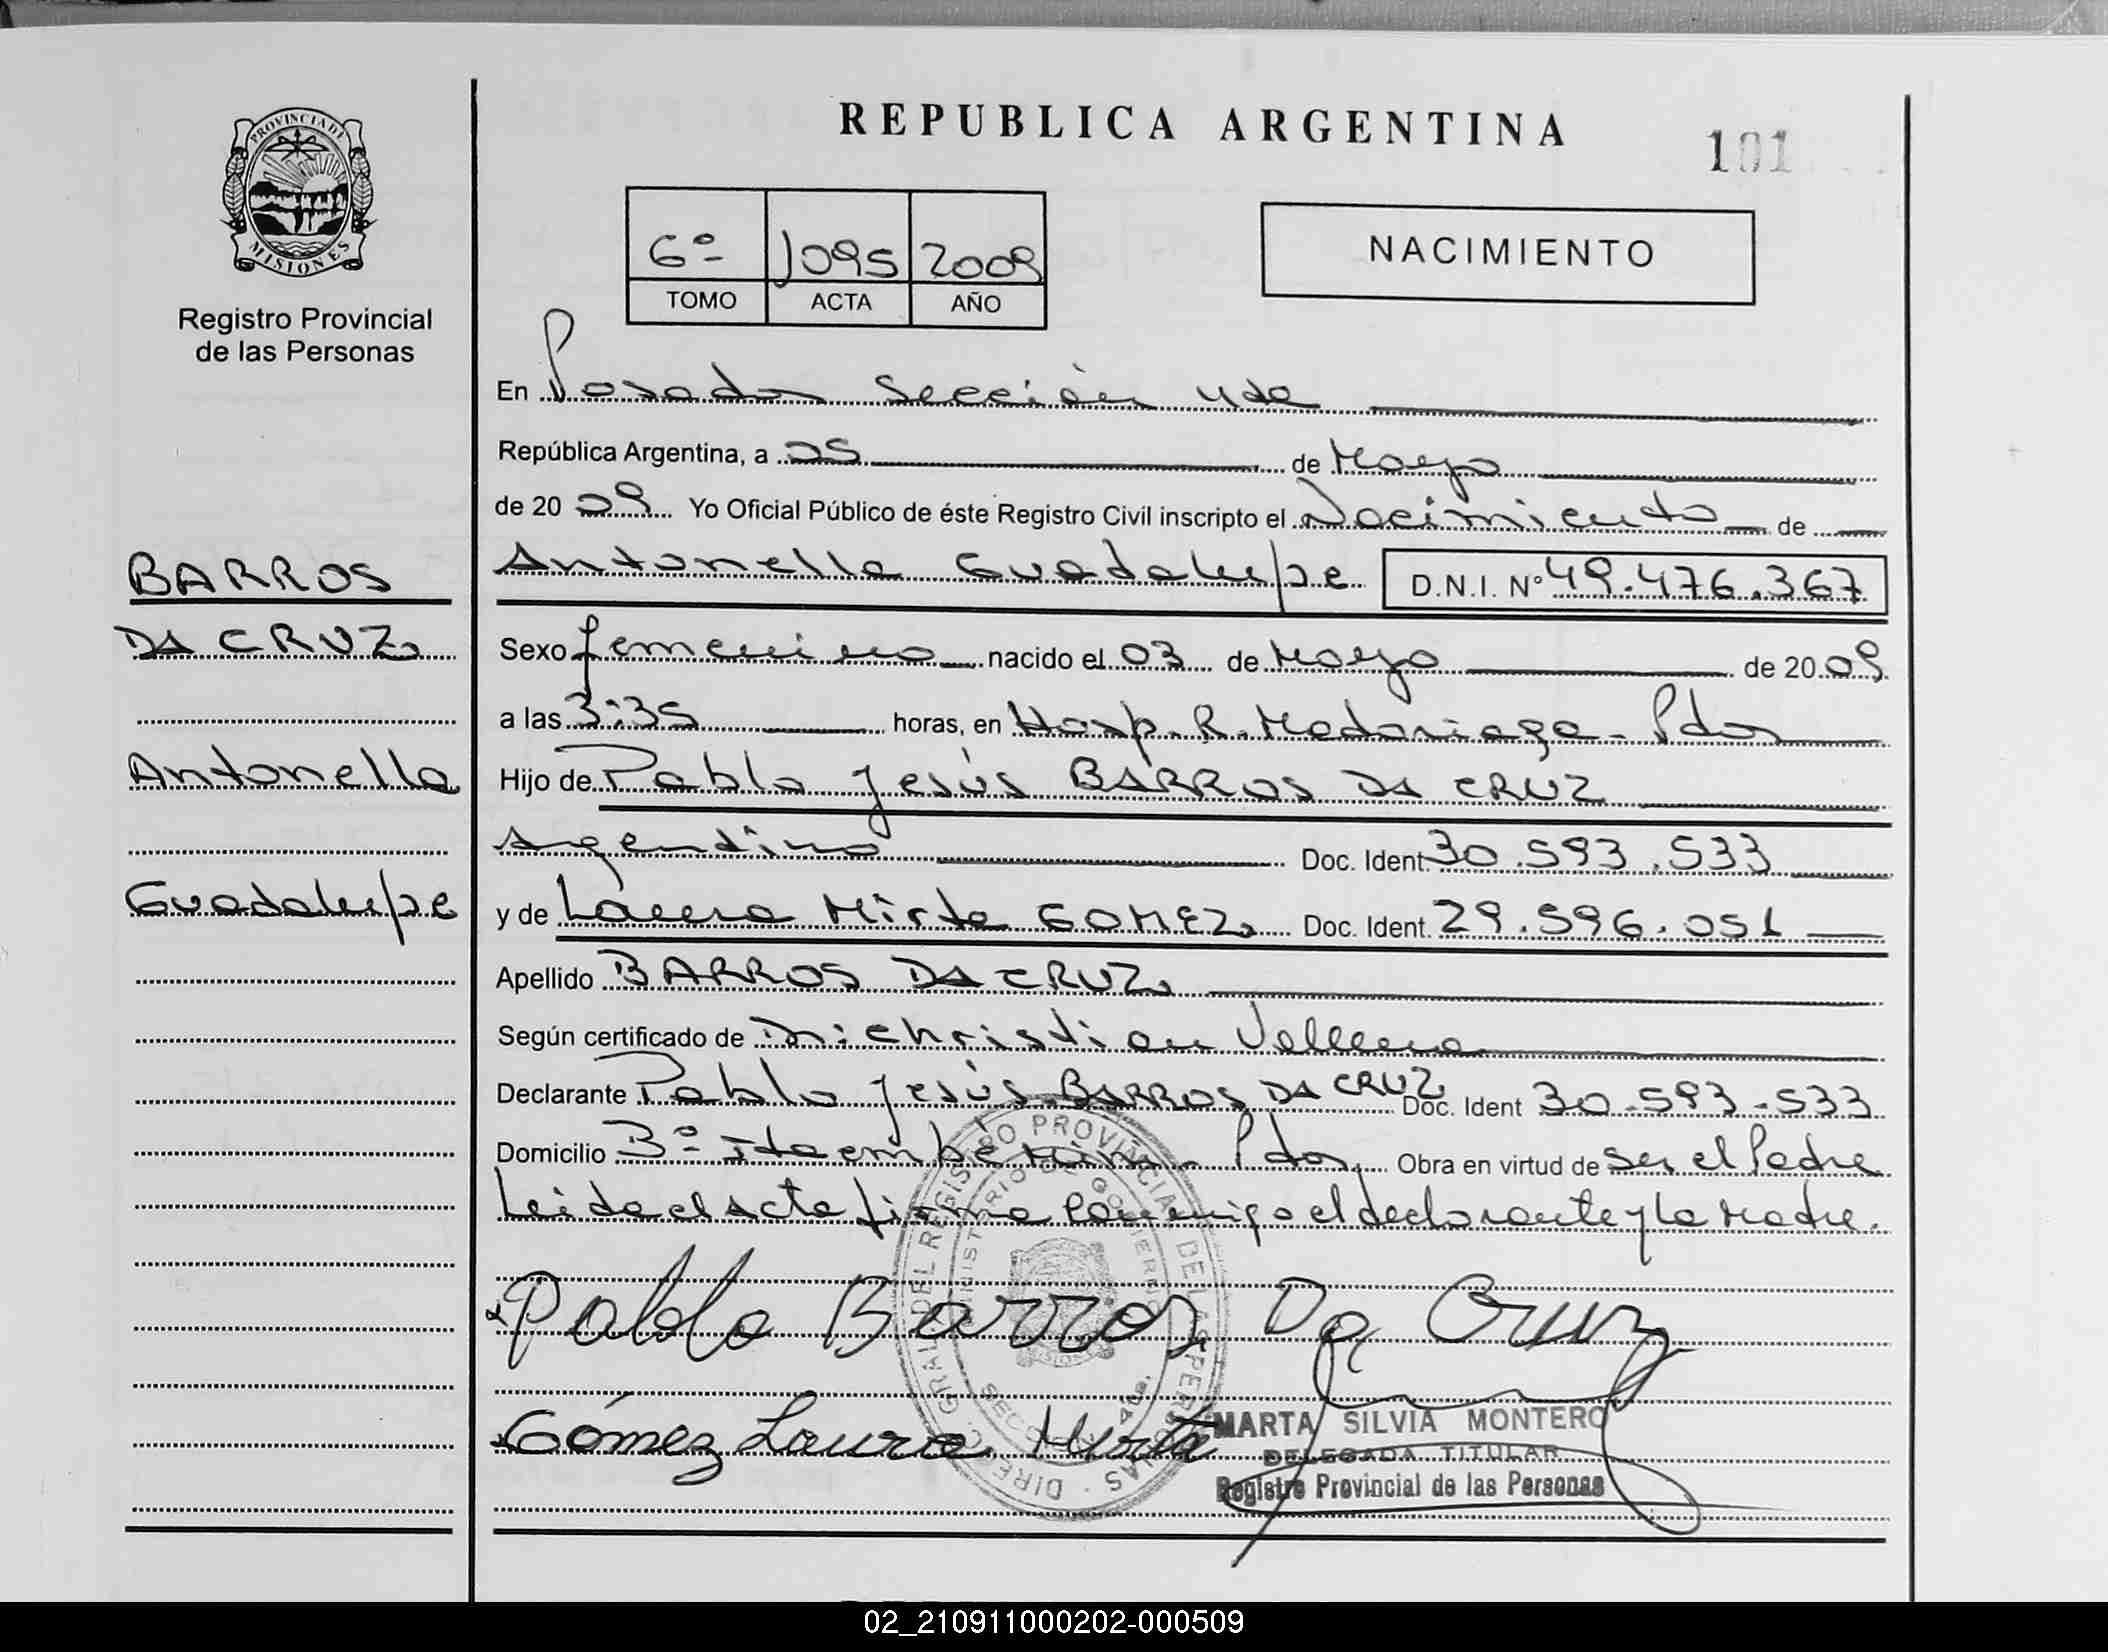 PROVINCIA DE
MISIONES
Registro Provincial
de las Personas
BARROS
DA CRUZ
Antonella
Guadalupe
REPUBLICA ARGENTINA
101
6º 1095 2009
TOMO ACTA AÑO
NACIMIENTO
En Posadas Sección 4ta
República Argentina, a 05 de Mayo
de 20 09 Yo Oficial Público de éste Registro Civil inscripto el Nacimiento de
Antonella Guadalupe D.N.I. Nº 49.476.367
Sexo femenino nacido el 03 de Mayo de 20 09
a las 3:35 horas, en Hosp. R. Madariaga - Pdas
Hijo de Pablo Jesús BARROS DA CRUZ
Argentino Doc. Ident. 30.593.533
y de Laura Mirta GOMEZ Doc. Ident. 29.596.051
Apellido BARROS DA CRUZ
Según certificado de Dr: Christian
Declarante Pablo Jesús BARROS DA CRUZ Doc. Ident 30.593.533
Domicilio Bº Itaembé Miní - Pdas. Obra en virtud de ser el Padre
Leida el Acta firma conmigo el declarante y la Madre.
Pablo Barros Da Cruz
Gómez Laura Mirta
MARTA SILVIA MONTERO
DELEGADA TITULAR
Registro Provincial de las Personas
02_210911000202-000509